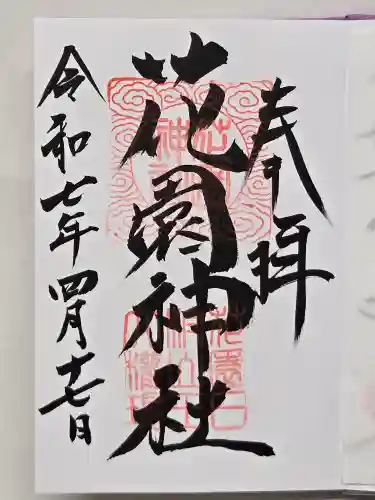 奉拝
花園神社
令和七年四月十七日